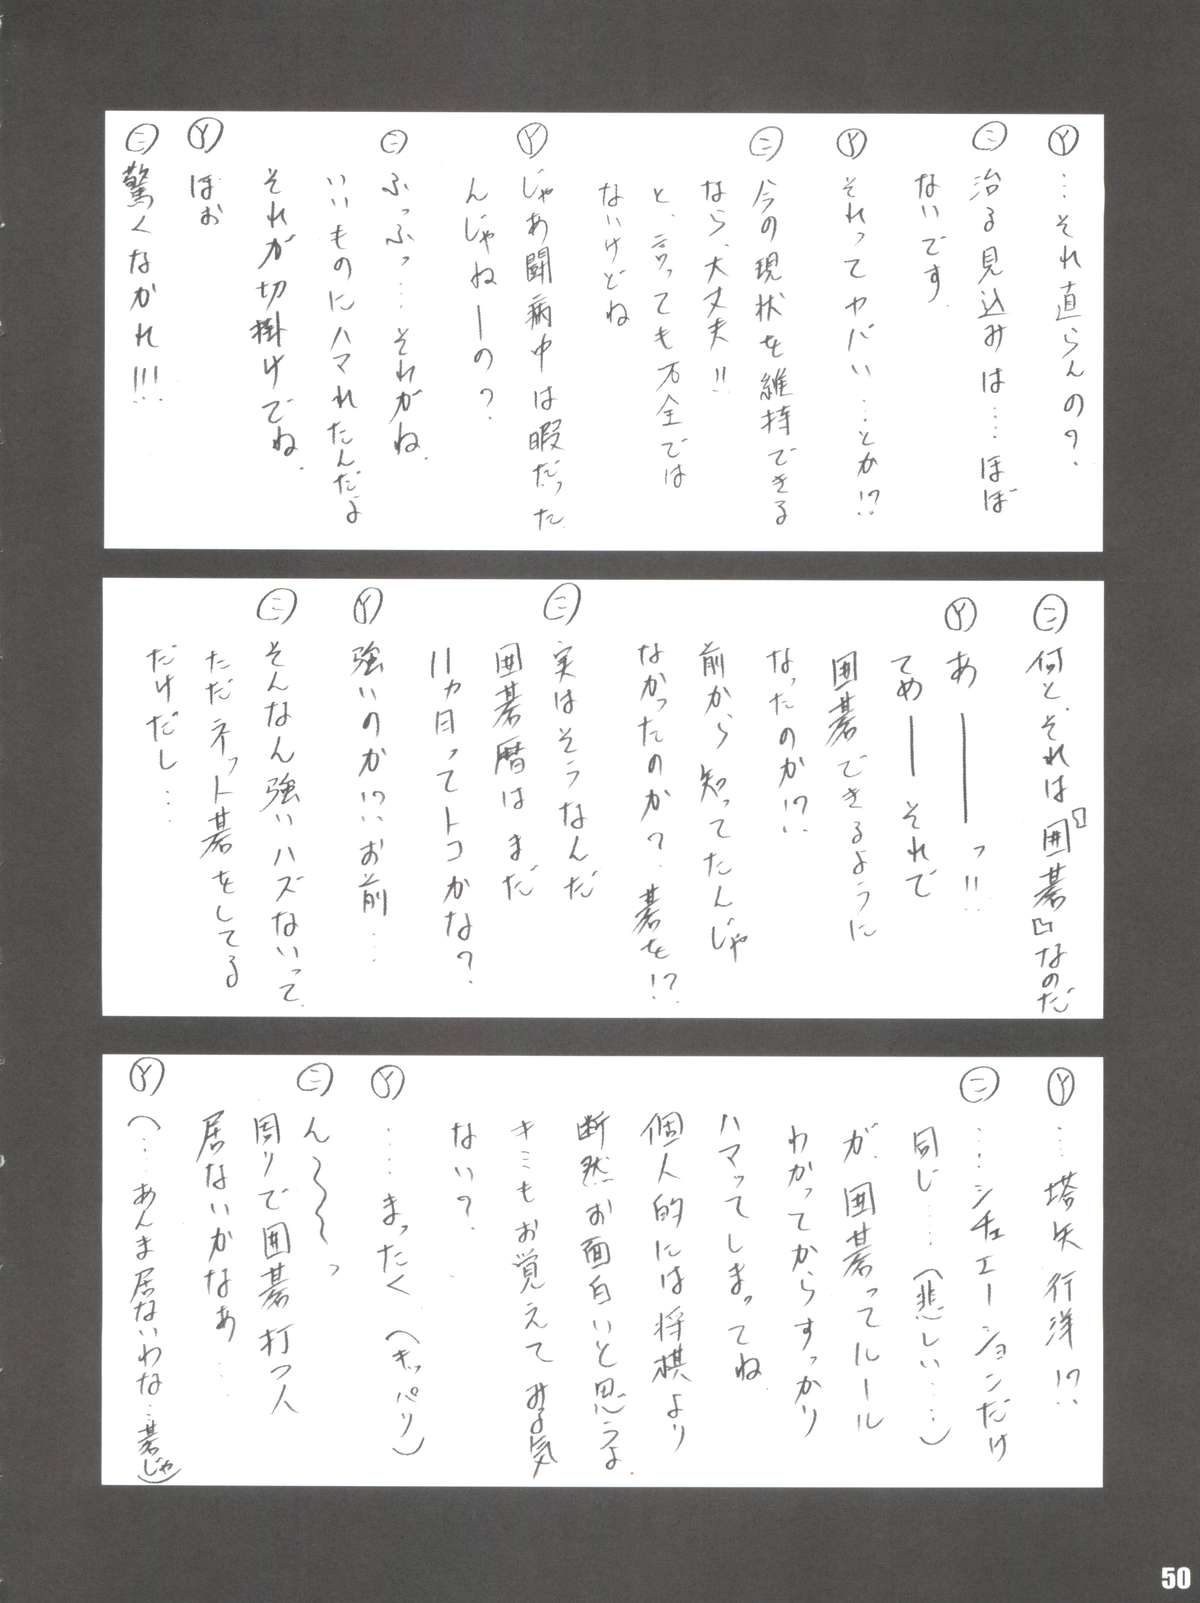 Ⓨ…それ直らんの？
㊁治る見込みは…ほぼ
ないです
Ⓨそれってヤバい…とか!?
㊁今の現状を維持できる
なら、大丈夫!!
と、言っても万全では
ないけどね
Ⓨじゃあ闘病中は暇だった
んじゃねーの？
㊁ふっふっ…それがね、
いいものにハマれたんだよ
それが切掛けでね、
Ⓨほお
㊁驚くなかれ!!!
㊁何と、それは「囲碁」なのだ
Ⓨあ――っ!!
てめ――それで
囲碁できるように
なったのか!?
前から知ってたんじゃ
なかったのか？碁を!?
㊁実はそうなんだ
囲碁暦はまだ
11ヵ月ってトコかな？
Ⓨ強いのか!?お前…
㊁そんなん強いハズないって、
ただネット碁をしてる
だけだし…
Ⓨ…塔矢行洋!?
㊁……シチュエーションだけ
同じ……（悲しい……）
が、囲碁ってルール
わかってからすっかり
ハマってしまってね、
個人的には将棋より
断然お面白いと思うよ
キミもお覚えてみる気
ない？
Ⓨ……まったく（キッパリ）
㊁ん～～～っ
周りで囲碁打つ人
居ないかなぁ…
Ⓨ（…あんま居ないわな…碁じゃ）
50